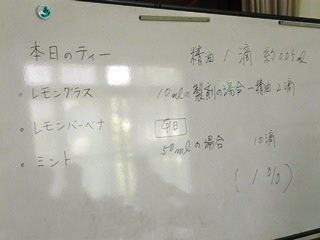 本日のティー
精油 1 滴 約0.05ml
・レモングラス
10mlの製剤の場合ー精油2滴
・レモンバーベナ
今日
50mlの場合 10滴
・ミント
(1%)